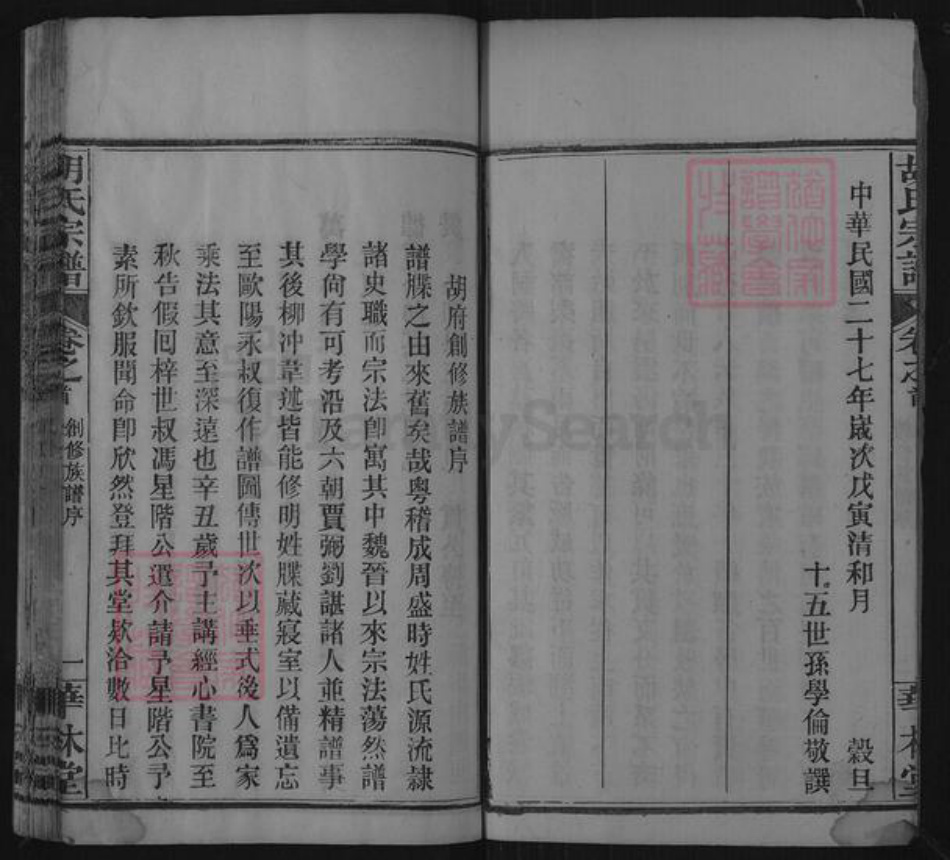 胡氏宗譜
卷之首
華林堂
中華民國二十七年歲次戊寅清和月 穀旦
十五世孫學倫敬譔
胡府創修族譜序
譜牒之由來舊矣哉粵稽成周盛時姓氏源流隸
諸史職而宗法卽寓其中魏晉以來宗法蕩然譜
學尙有可考沿及六朝賈弼劉諶諸人並精譜事
其後柳冲韋述皆能修明姓牒藏寢室以備遺忘
至歐陽永叔復作譜圖傳世次以垂式後人爲家
乘法其意至深遠也辛丑歲予主講經心書院至
秋告假囘梓世叔馮星階公遣介請予星階公予
素所欽服聞命卽欣然登拜其堂欵洽數日比時
胡氏宗譜
卷之首
創修族譜序
一
華林堂
FamilySearch